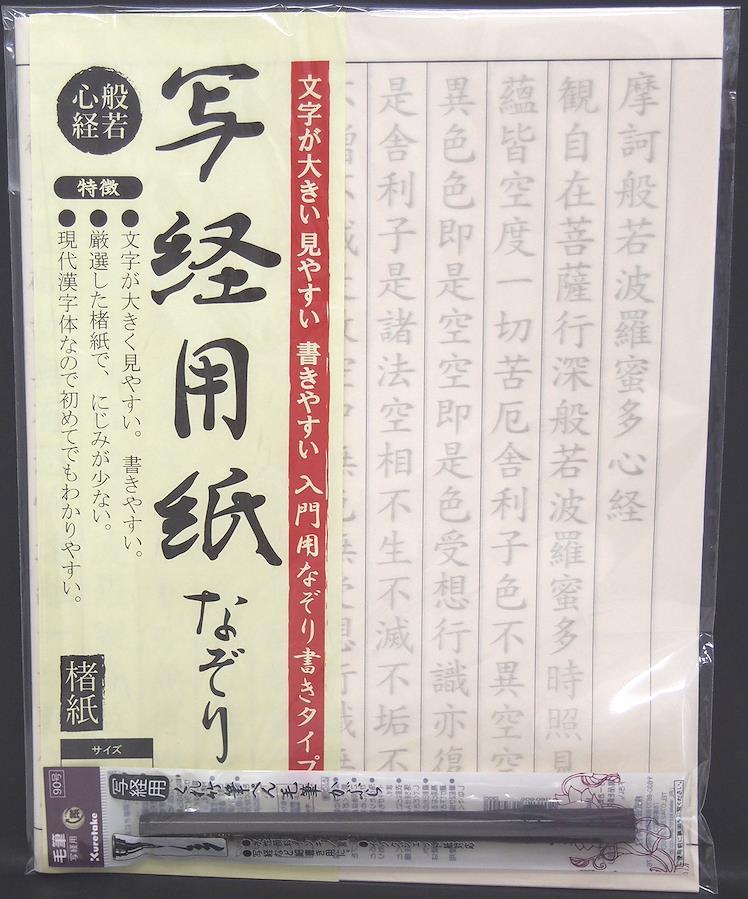 摩訶般若波羅蜜多心経
観自在菩薩行深般若波羅蜜多時照見
蘊皆空度一切苦厄舎利子色不異空空
異色色即是空空即是色受想行識亦復
是舎利子是諸法空相不生不滅不垢不
文字が大きい 見やすい 書きやすい 入門用なぞり書きタイプ
写経用紙なぞり
般若
心経
特徴
●文字が大きく見やすい。書きやすい。
●厳選した楮紙で、にじみが少ない。
●現代漢字体なので初めてでもわかりやすい。
楮紙
サイズ
90号
毛筆
写経用
Kuretake
写経用
くれ竹筆ぺん毛筆